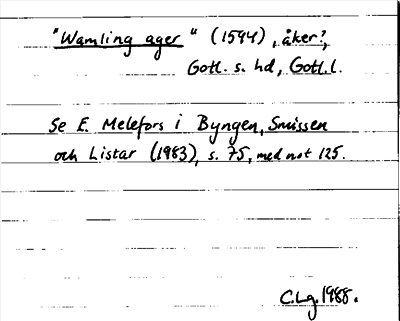 "Wamling ager" (1594), åker?,
Gotl. s. hd, Gotl. l.
Se E. Melefors i Byngen, Smissen
och Listar (1983), s. 75, med not 125.
C.Lg. 1988.